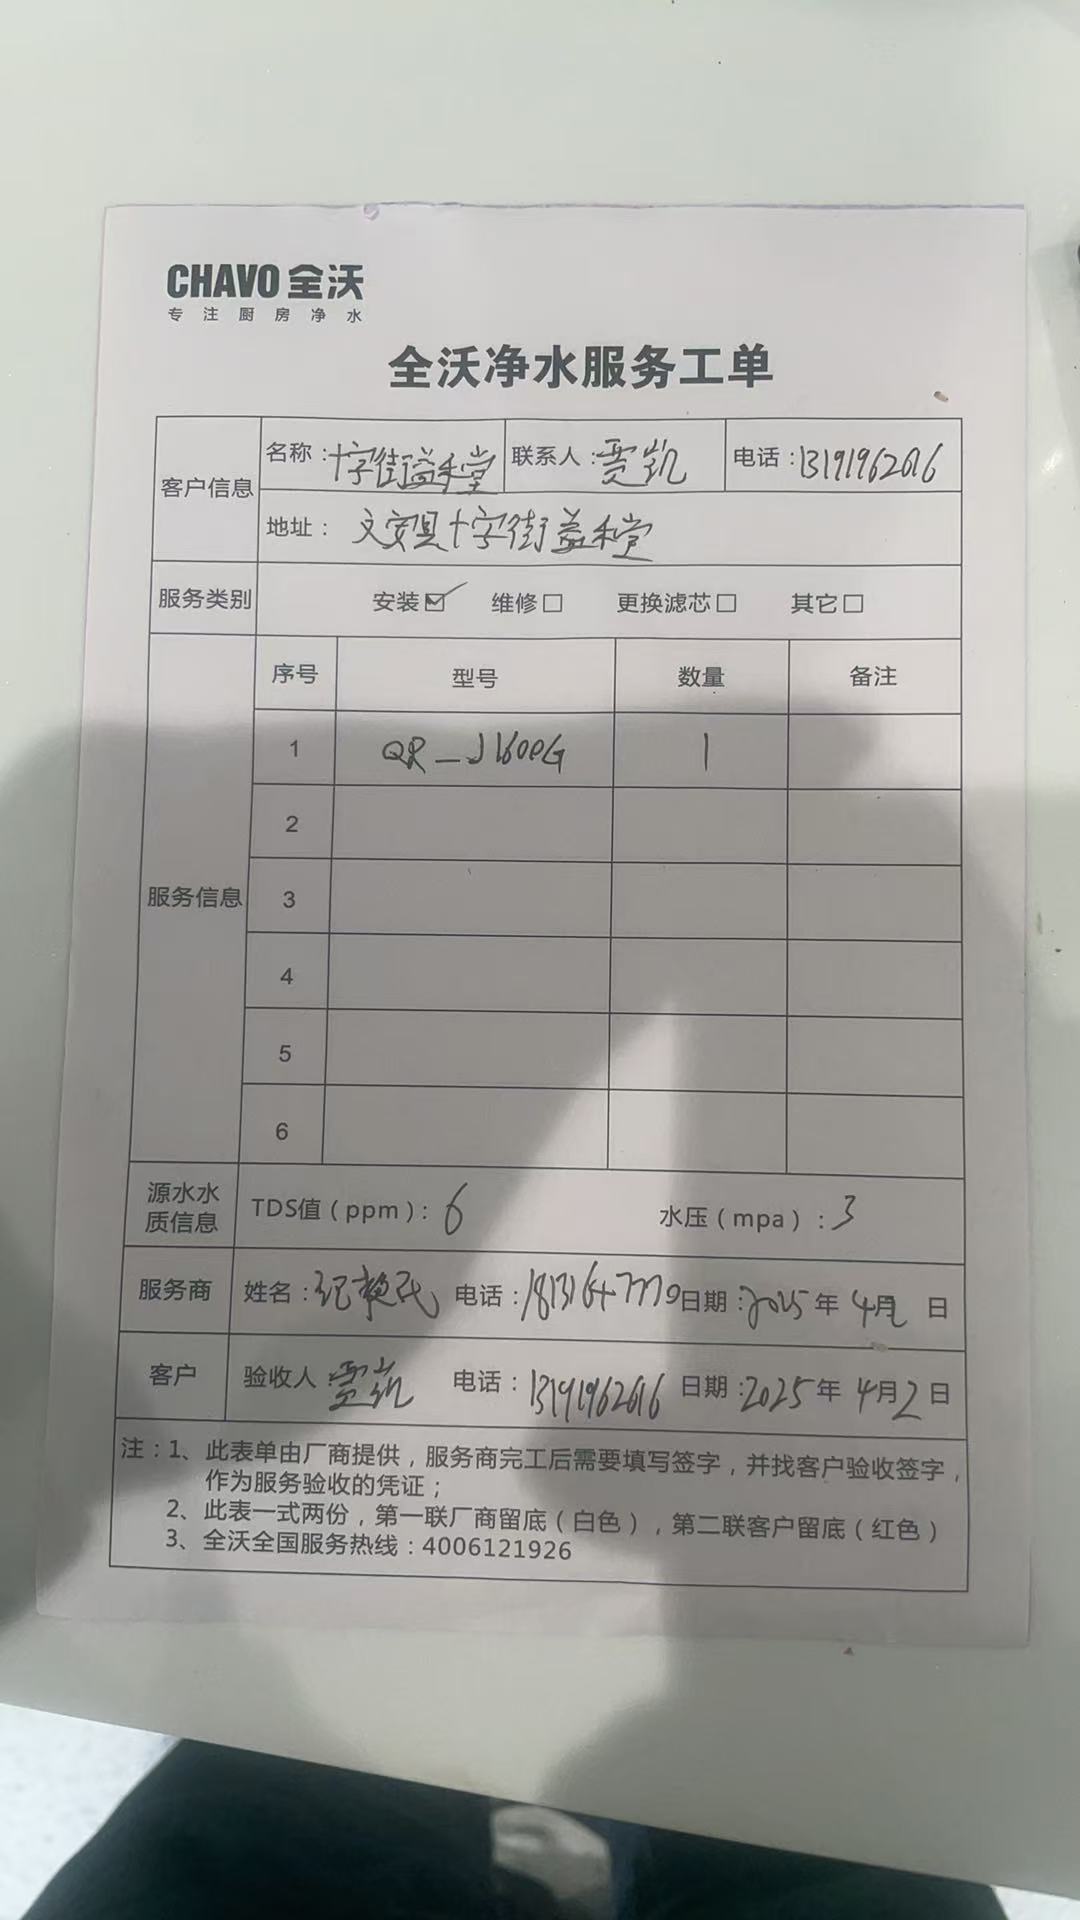 CHAVO 全沃
专注厨房净水
全沃净水服务工单
客户信息 名称：十字街益和堂 联系人：贾凯 电话：13191962616
地址：文安县十字街益和堂
服务类别 安装☑ 维修□ 更换滤芯□ 其它□
服务信息 序号 型号 数量 备注
1 QR-J1600G 1
2
3
4
5
6
源水水质信息 TDS值（ppm）：6 水压（mpa）：3
服务商 姓名： 电话： 日期：2025年4月2日
客户 验收人：贾凯 电话：13191962616 日期：2025年4月2日
注：1、此表单由厂商提供，服务商完工后需要填写签字，并找客户验收签字，
作为服务验收的凭证；
2、此表一式两份，第一联厂商留底（白色），第二联客户留底（红色）
3、全沃全国服务热线：4006121926